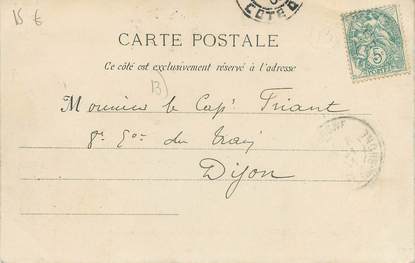 15 €
CÔTE D
CARTE POSTALE
Ce côté est exclusivement réservé à l'adresse
B
5
POSTES
Monsieur le Cap! Friant
8e Eon du Train
Dijon